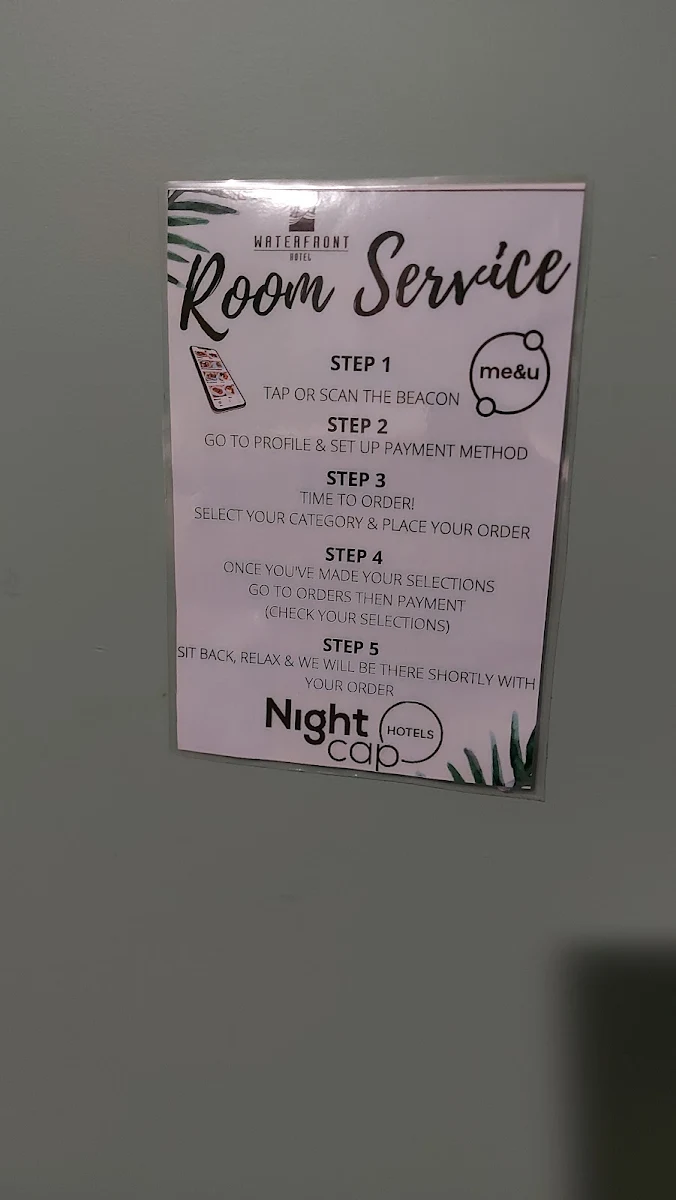 WATERFRONT
HOTEL
Room Service
me&u
STEP 1
TAP OR SCAN THE BEACON
STEP 2
GO TO PROFILE & SET UP PAYMENT METHOD
STEP 3
TIME TO ORDER!
SELECT YOUR CATEGORY & PLACE YOUR ORDER
STEP 4
ONCE YOU'VE MADE YOUR SELECTIONS
GO TO ORDERS THEN PAYMENT
(CHECK YOUR SELECTIONS)
STEP 5
SIT BACK, RELAX & WE WILL BE THERE SHORTLY WITH
YOUR ORDER
Night
cap
HOTELS